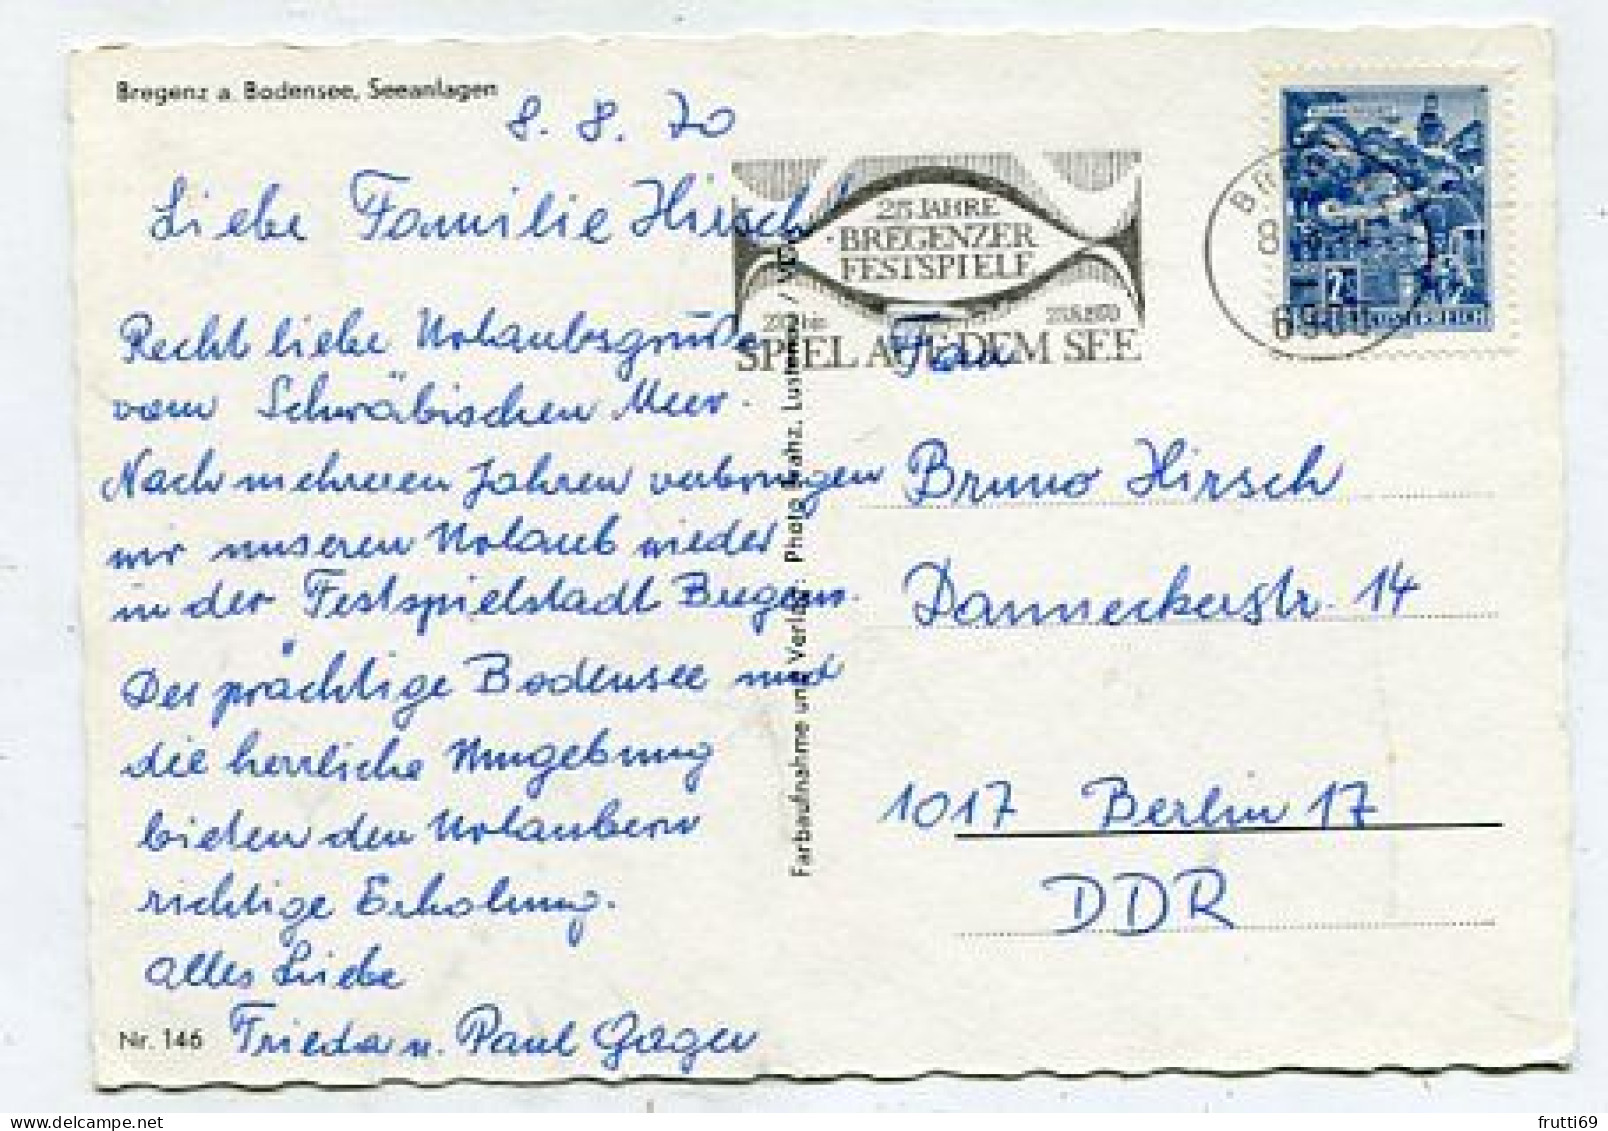 Bregenz a. Bodensee, Seeanlagen
8. 8. 70
Liebe Familie Hirsch!
Recht liebe Urlaubsgrüße
vom Schwäbischen Meer.
Nach mehreren Jahren verbringen
wir unseren Urlaub wieder
in der Festspielstadt Bregenz.
Der prächtige Bodensee und
die herrliche Umgebung
bieten den Urlaubern
richtige Erholung.
Alles Liebe
Frieda u. Paul
Nr. 146
Farbaufnahme und Verlag: Photo
25 JAHRE
BREGENZER
FESTSPIELE
bis 23.8.1970
SPIEL AUF DEM SEE
6900
2
Frau
Bruno Hirsch
Danneckerstr. 14
1017 Berlin 17
DDR
delcampe.net
frutti69